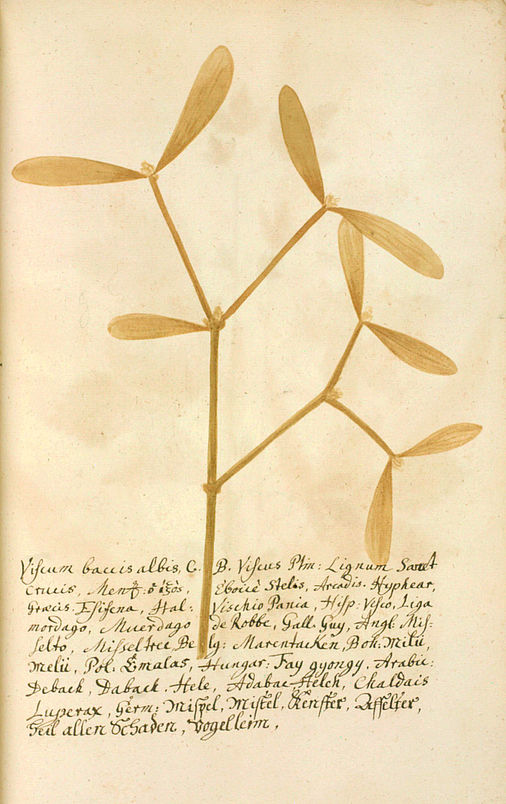 Viscum baccis albis, C. B. Viscus Plin: Lignum Sanct
crucis, Ment: ὁ ἰξὸς, Eboicè Stelis, Arcadis. Hyphear,
Græcis. Ital: Vischio Pania, Hisp: Visco, Liga
mordago, Muerdago de Robbe, Gall. Guy, Angl: Mis-
selto, Misseltree, Belg: Marentacken, Boh: Milii,
Melii, Pol. Hungar. Fay gyongy, Arabic:
Deback, Daback. Hele, Adabac, Heleh, Chaldais
Luperax, Germ: Mispel, Mistel, Kenster, Affelter,
Heil allen Schaden, Vogelleim,